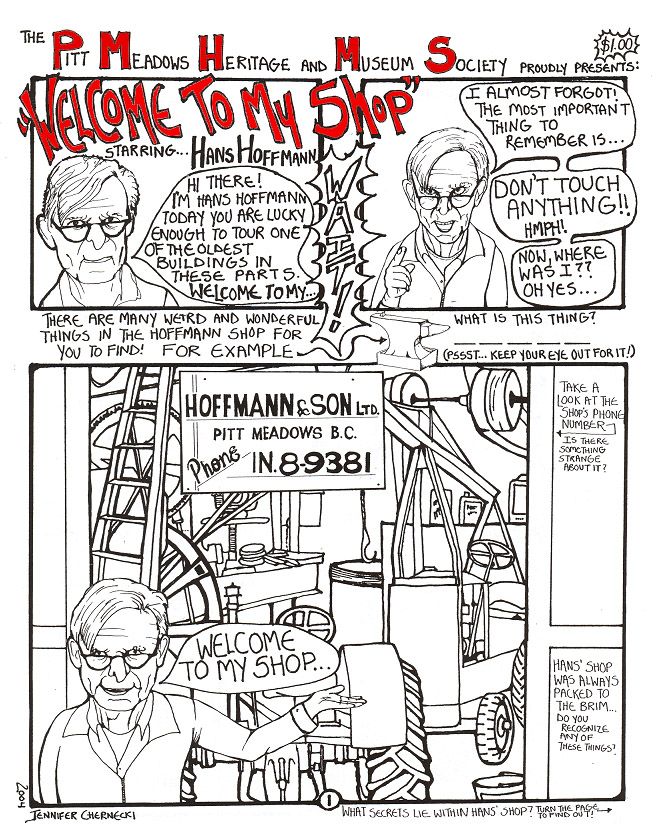 THE PITT MEADOWS HERITAGE AND MUSEUM SOCIETY PROUDLY PRESENTS:
$1.00!
"WELCOME TO MY SHOP"
STARRING... HANS HOFFMANN
HI THERE!
I'M HANS HOFFMANN
TODAY YOU ARE LUCKY
ENOUGH TO TOUR ONE
OF THE OLDEST
BUILDINGS IN
THESE PARTS.
WELCOME TO MY...
WAIT!
I ALMOST FORGOT!
THE MOST IMPORTANT
THING TO
REMEMBER IS...
DON'T TOUCH
ANYTHING!!
HMPH!
NOW, WHERE
WAS I??
OH YES...
THERE ARE MANY WEIRD AND WONDERFUL
THINGS IN THE HOFFMANN SHOP FOR
YOU TO FIND! FOR EXAMPLE
WHAT IS THIS THING?
_ _ _ _ _
(PSSST... KEEP YOUR EYE OUT FOR IT!)
HOFFMANN & SON LTD.
PITT MEADOWS B.C.
Phone IN.8-9381
TAKE A
LOOK AT THE
SHOP'S PHONE
NUMBER
IS THERE
SOMETHING
STRANGE
ABOUT IT?
WELCOME
TO MY SHOP...
HANS' SHOP
WAS ALWAYS
PACKED TO
THE BRIM...
DO YOU
RECOGNIZE
ANY OF
THESE THINGS?
2004
JENNIFER CHERNECKI
1
WHAT SECRETS LIE WITHIN HANS' SHOP? TURN THE PAGE
TO FIND OUT!